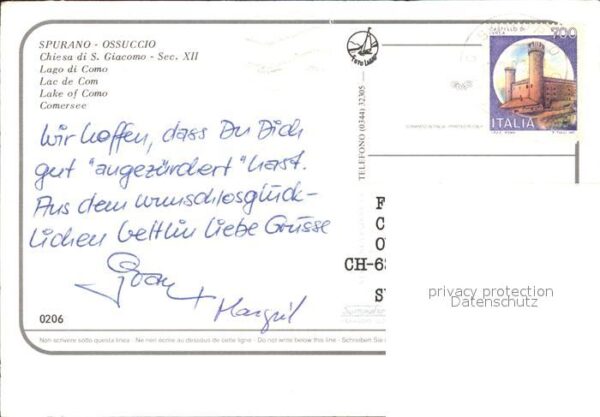 SPURANO - OSSUCCIO
Chiesa di S. Giacomo - Sec. XII
Lago di Como
Lac de Com
Lake of Como
Comersee
Wir hoffen, dass Du Dich
gut "angezürdert" hast.
Aus dem wunschlosglück-
lichen Veltlin liebe Grüsse
+ Margrit
0206
Non scrivere sotto questa linea - Ne rien écrire au dessous de cette ligne - Do not write below this line - Schreiben Sie
FOTO LABO
TELEFONO (0344) 32305
CASTELLO DI
700
ITALIA
F
C
O
CH-63
S
privacy protection
Datenschutz